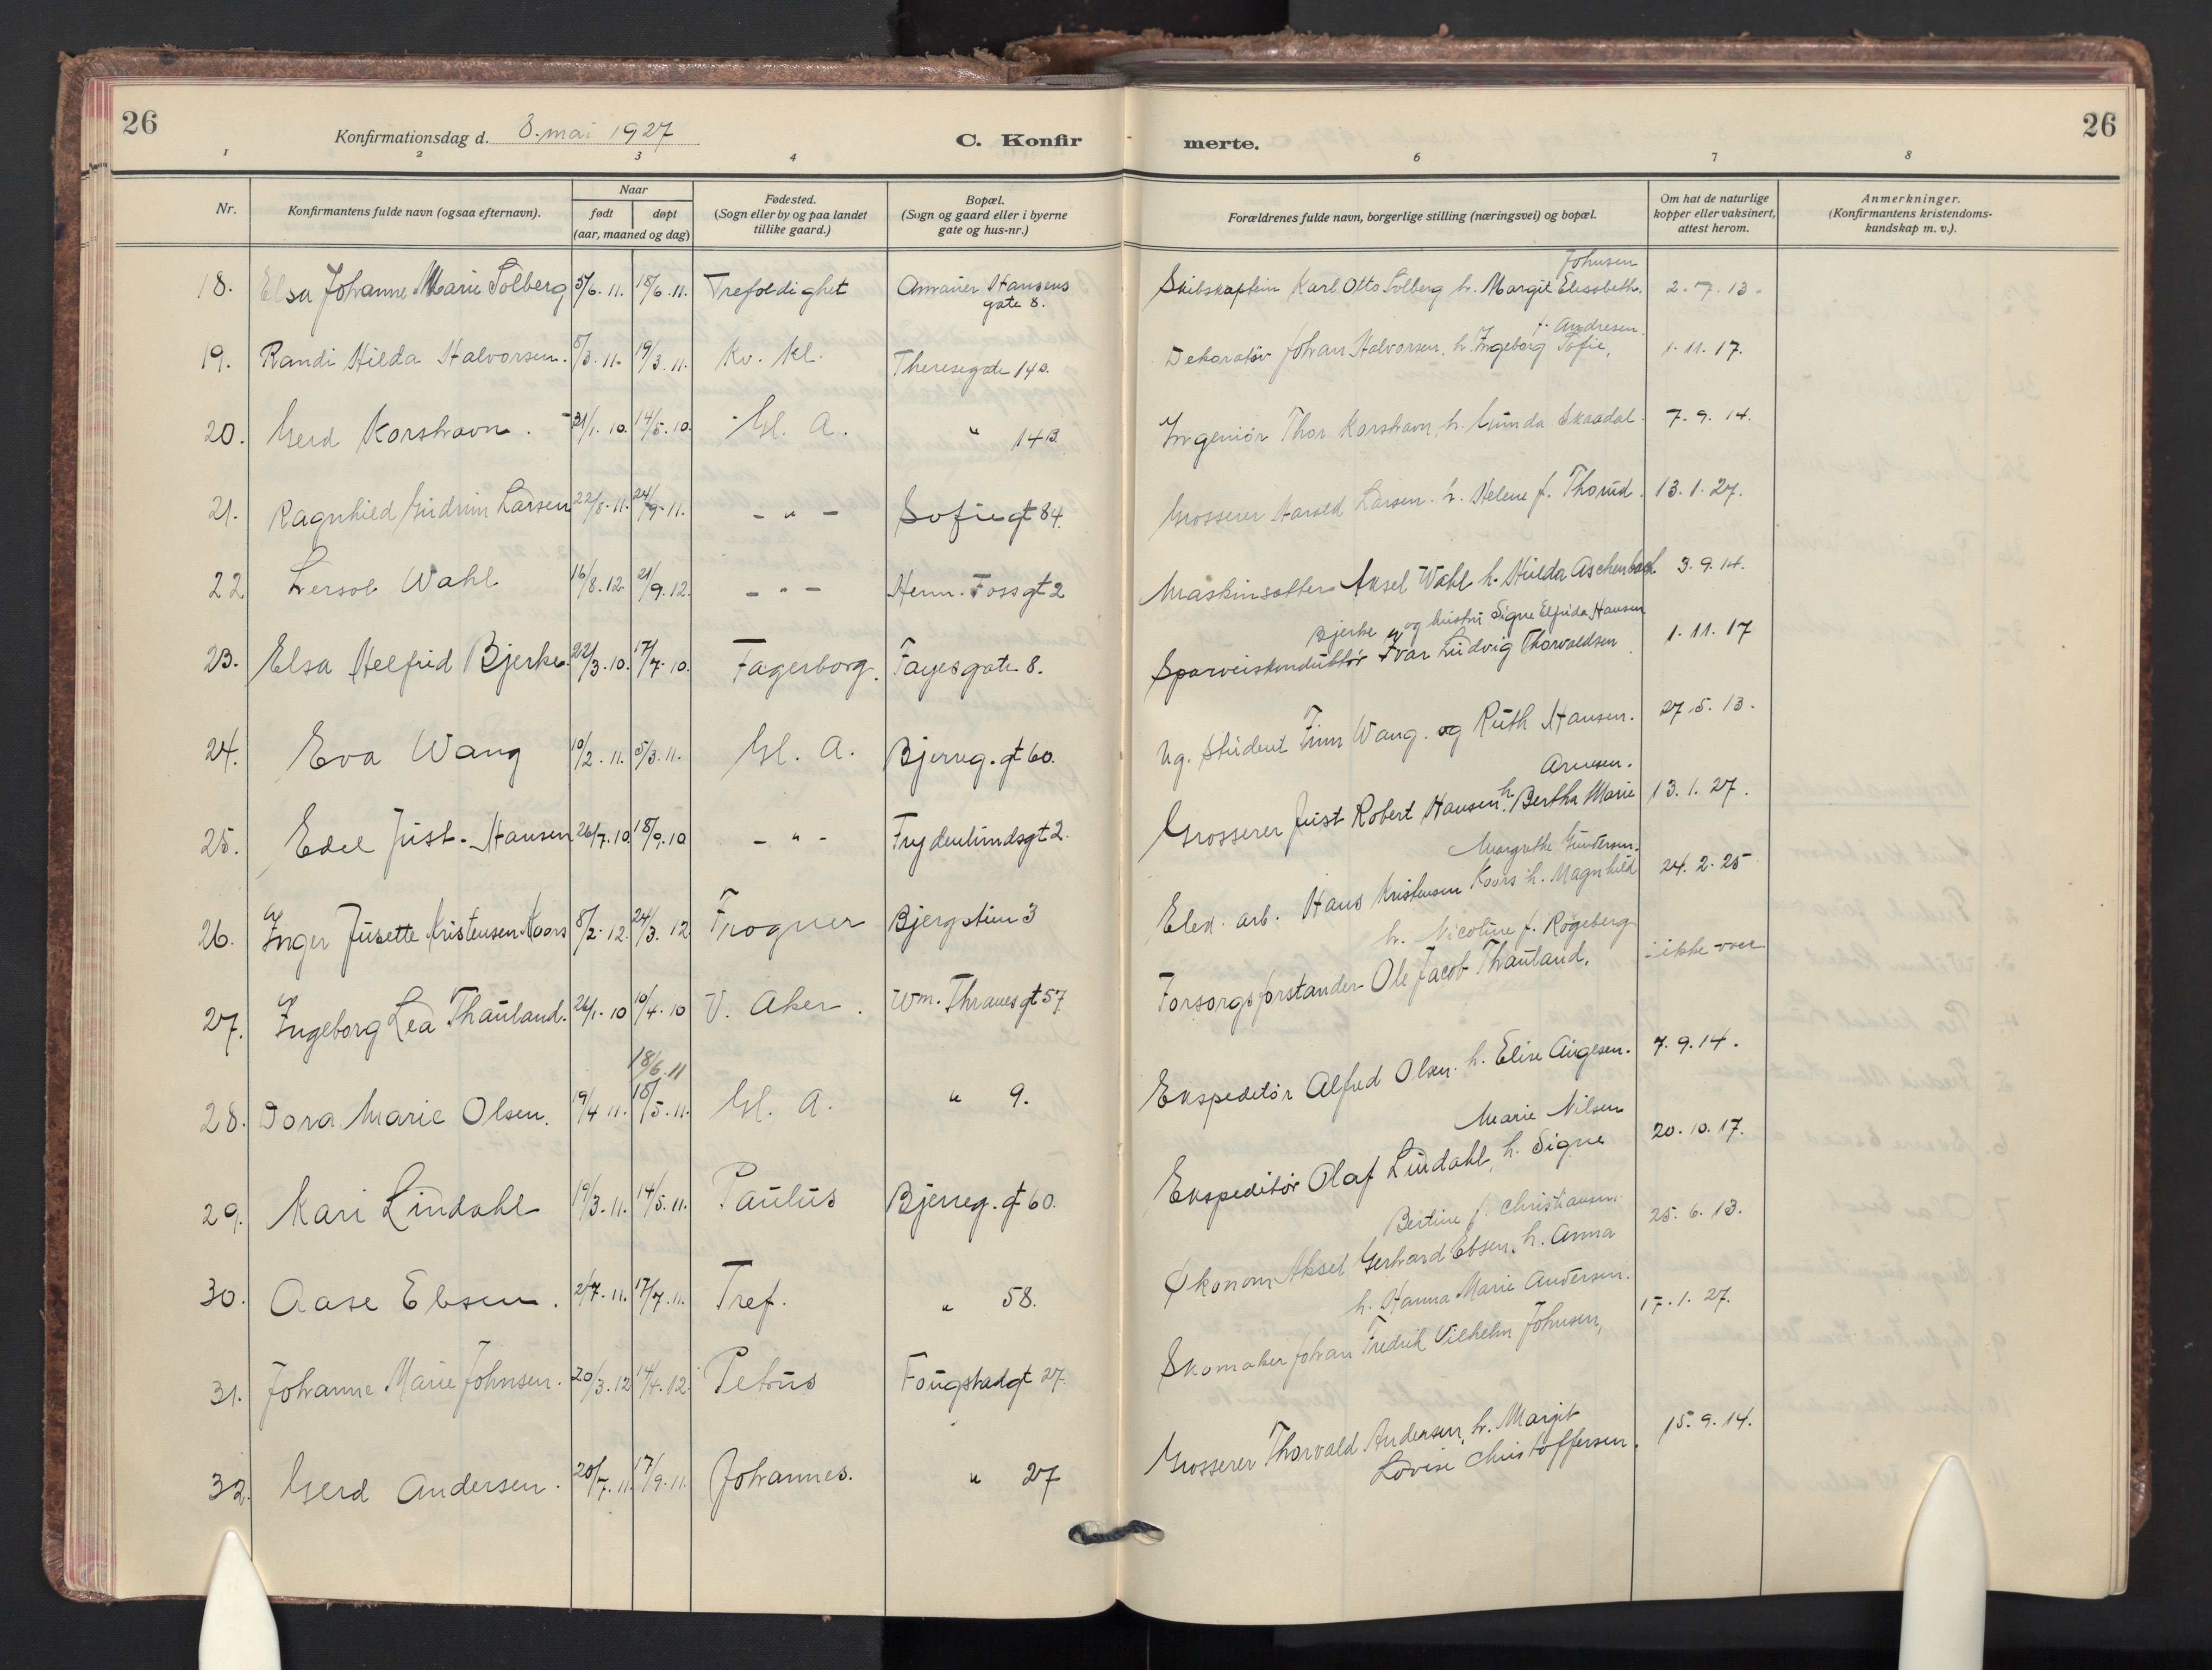 26
Konfirmationsdag d. 8. mai 1927
C. Konfir
merte.
26
1 2 3 4 6 7 8
Nr.
Konfirmantens fulde navn (ogsaa efternavn).
Naar
født døpt
(aar, maaned og dag)
Fødested.
(Sogn eller by og paa landet
tillike gaard.)
Bopæl.
(Sogn og gaard eller i byerne
gate og hus-nr.)
Forældrenes fulde navn, borgerlige stilling (næringsvei) og bopæl.
Om hat de naturlige
kopper eller vaksinert,
attest herom.
Anmerkninger.
(Konfirmantens kristendoms-
kundskap m. v.).
Johnsen
18. Elsa Johanne Marie Solberg 5/6. 11. 18/6. 11. Trefoldighet Hansens Skibskaptein Karl Otto Solberg h. Margit Elisabeth. 2. 7. 13.
gate 8.
f. Andresen.
19. Randi Hilda Halvorsen. 8/3. 11. 19/3. 11. Kv. Kl. Theresegate 14B. Dekoratør Johan Halvorsen, h. Ingeborg Sofie, 1. 11. 17.
20. Gerd Korshavn. 31/1. 10. 14/5. 10. Gl. A. " 14B. Ingeniør Thor Korshavn, h. Skaadal. 7. 9. 14.
21. Ragnhild Gudrun Larsen 22/8. 11. 24/9. 11. - " - Sofiegt 84. Grosserer Harald Larsen. h. Helene f. Thorud. 13. 1. 27.
22 Wahl 16/8. 12. 21/9. 12. - " - Herm. Fossgt 2 Maskinsætter Aksel Wahl h. Hilda Aschenbach. 3. 9. 14.
Bjerke og hustru Signe Elfrida Hansen
23. Elsa Helfrid Bjerke. 22/3. 10. 17/7. 10. Fagerborg. Fayesgate 8. Sporveiskonduktør Ivar Ludvig Thorvaldsen 1. 11. 17
24. Eva Wang 10/2. 11. 5/3. 11. Gl. A. Bjerreg. gt 60. Ug. Student Finn Wang. og Ruth Hansen. 27. 5. 13.
Arnesen.
25. Edel Just-Hansen 26/7. 10 18/9. 10 - " - Frydenlundsgt 2. Grosserer Just Robert Hansen, h. Bertha Marie 13. 1. 27.
Margrethe Gundersen.
26. Inger Jusette Kristensen Koors 8/2. 12. 24/3. 12 Frogner Bjergstien 3 Elek. arb. Hans Kristensen Koors h. Magnhild 24. 2. 25
h. Nicoline f. Røgeberg
27. Ingeborg Lea Thauland. 26/1. 10 10/4. 10 V. Aker. Wm. Thranesgt 57. Forsorgsforstander Ole Jacob Thauland. ikke vacc
18/6. 11
28. Dora Marie Olsen. 19/4 11. 18/5. 11. Gl. A. " 9. Ekspeditør Alfred Olsen. h. Elise Augesen. 7. 9. 14.
Marie Nilsen
29. Kari Lindahl 19/3. 11. 14/5. 11. Paulus Bjerreg. gt 60. Ekspeditør Olaf Lindahl, h. Signe 20. 10. 17.
Bertine f. Christiansen.
30. Aase Ebsen. 2/7. 11. 17/7. 11. Tref. " 58. Økonom Aksel Gerhard Ebsen, h. Anna 25. 6. 13.
h. Hanna Marie Andersen.
31. Johanne Marie Johnsen. 20/3. 12 14/4. 12. Petrus Fougstadgt 27. Skomaker Johan Fredrik Vilhelm Johnsen, 17. 1. 27.
32. Gerd Andersen. 20/7. 11. 17/9. 11. Johannes. " 27 Grosserer Thorvald Andersen, h. Margit 15. 9. 14.
Lovise Christoffersen.